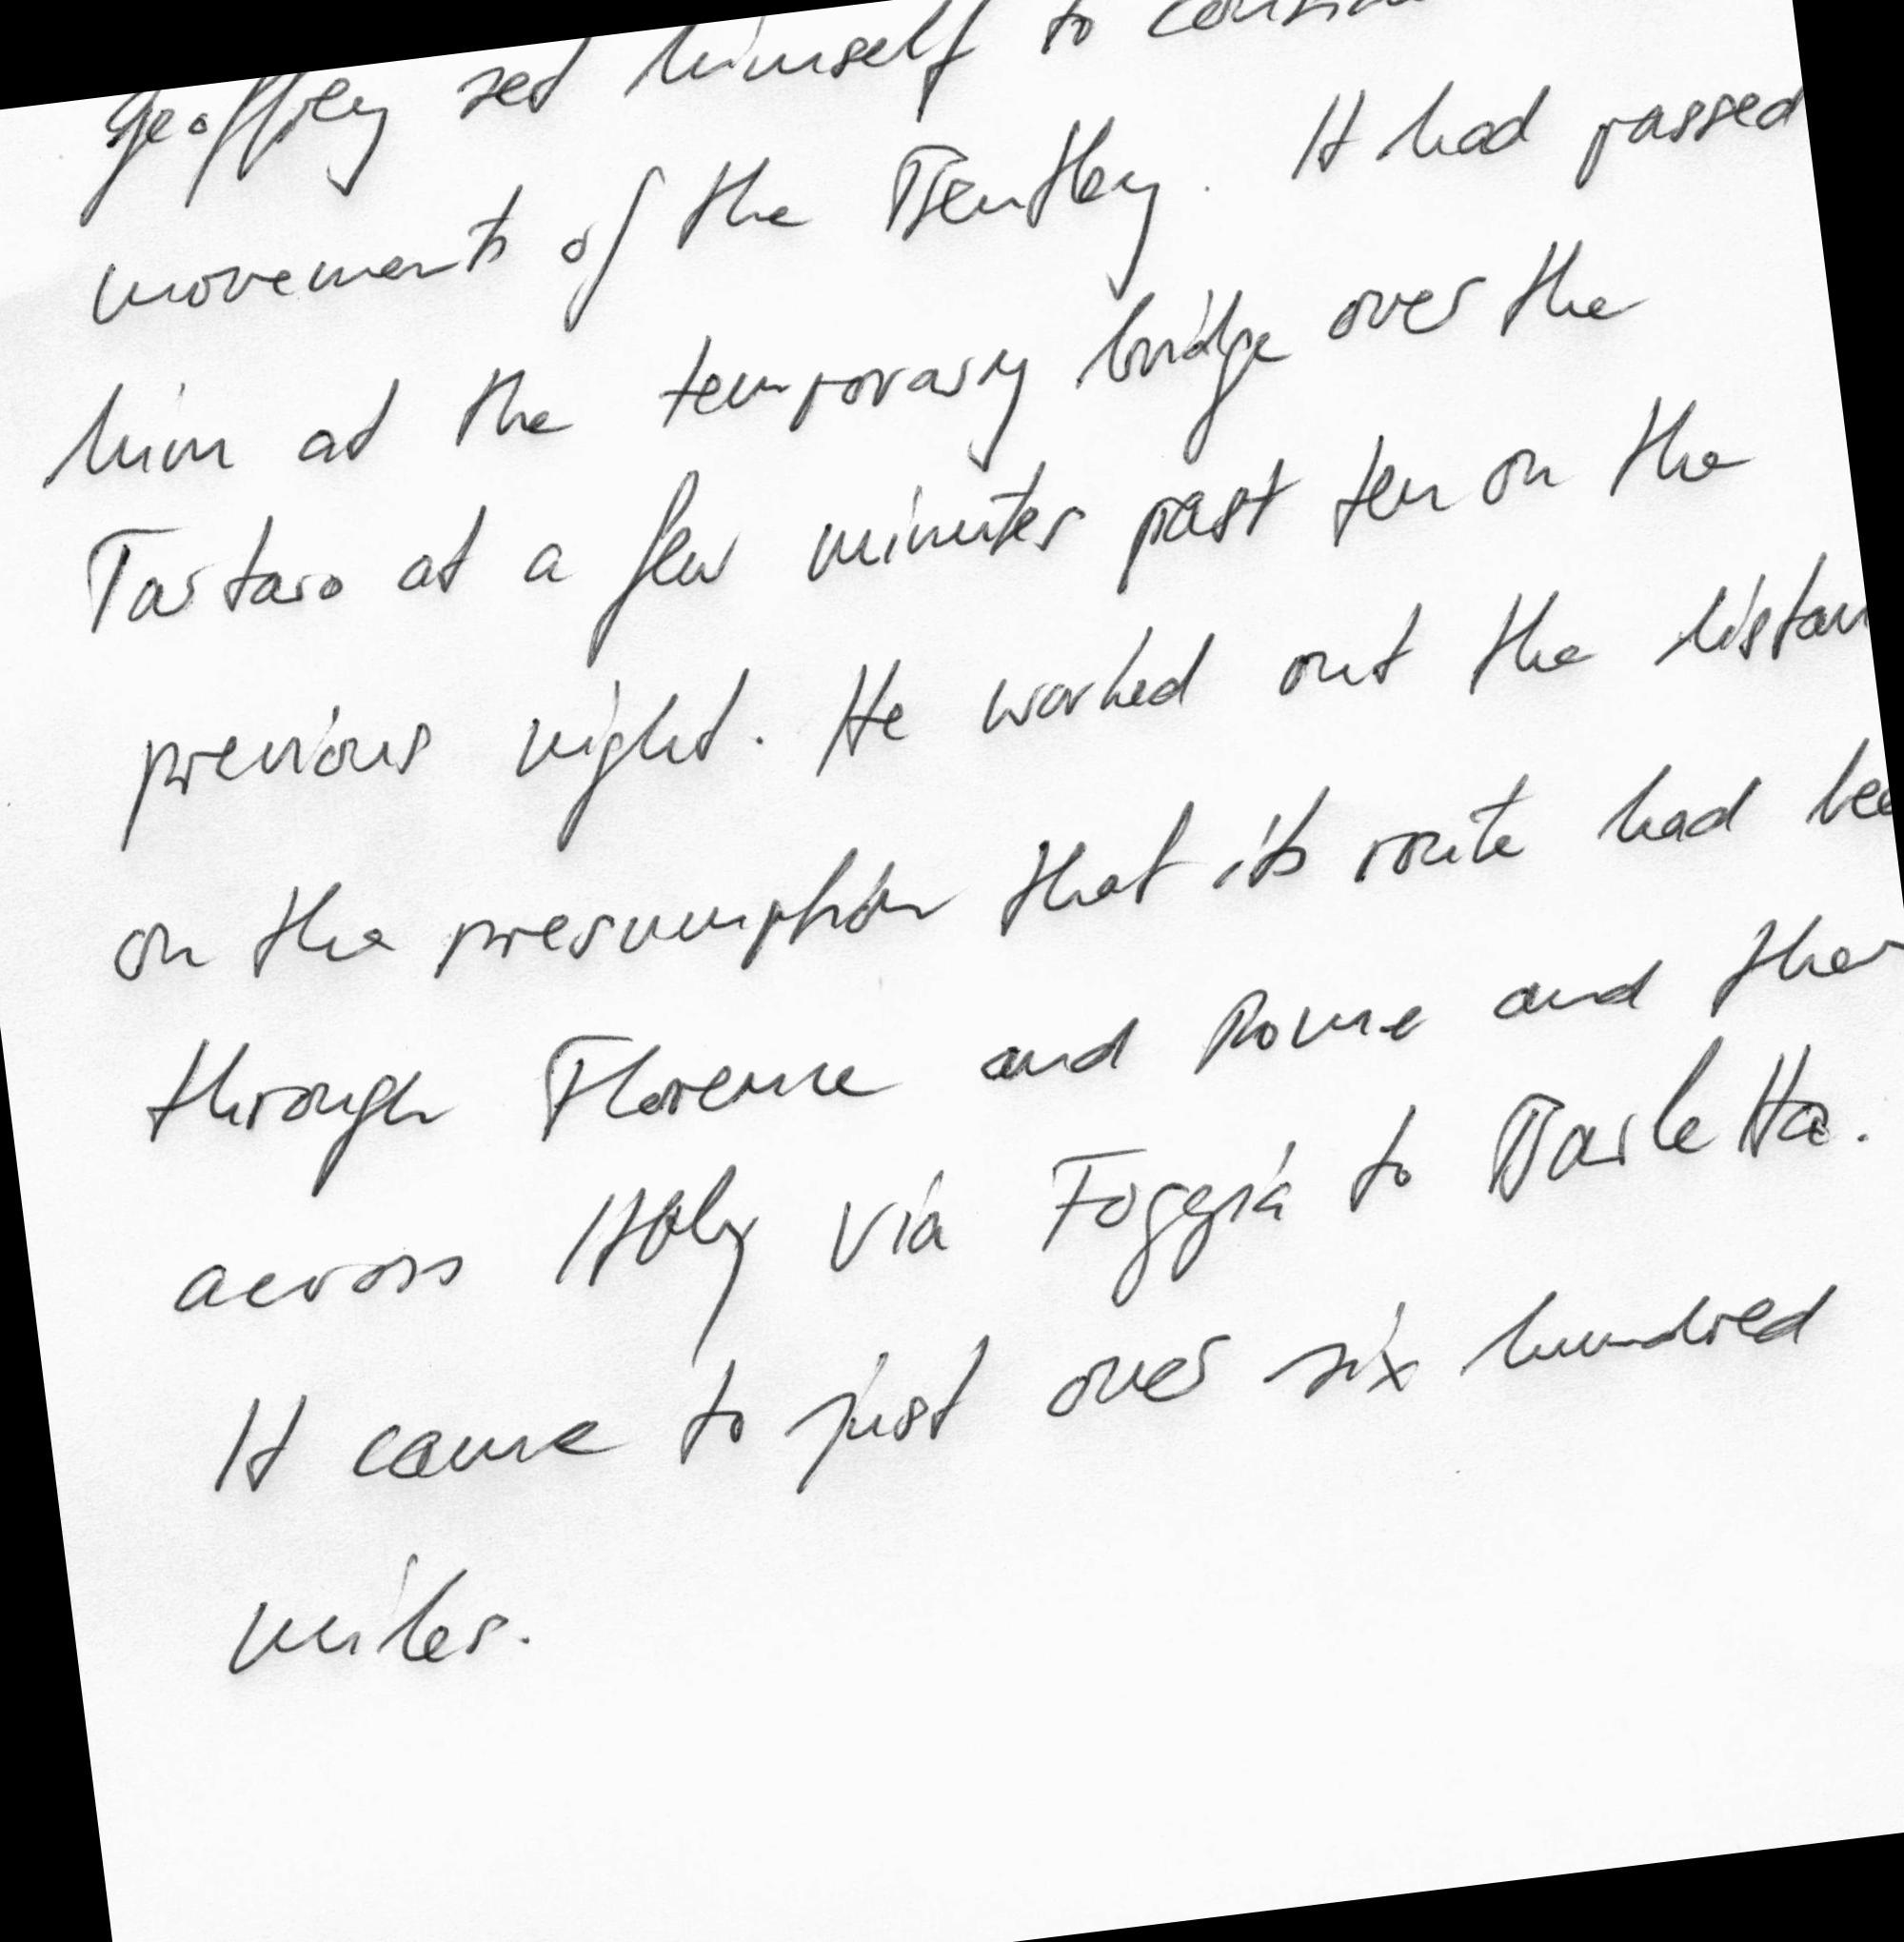 Geoffrey set himself to
movements of the Bentley. It had passed
him at the temporary bridge over the
Tartaro at a few minutes past ten on the
previous night. He worked out the
on the presumption that its route had
through Florence and Rome and
across Italy via Foggia to Barletta.
It came to just over six hundred
miles.